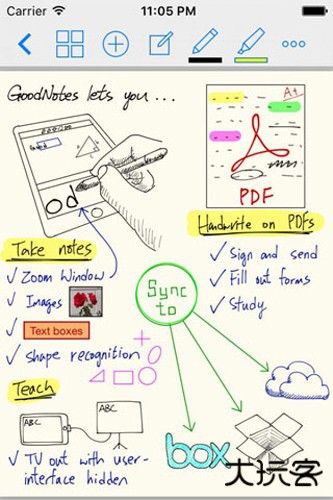 Carrier 11:05 PM
GoodNotes lets you...
A+
od
PDF
Handwrite on PDFs
✓ Sign and send
✓ Fill out forms
✓ Study
Take notes
✓ Zoom Window
✓ Images
✓ Text boxes
✓ shape recognition
Sync
to
Teach
ABC
ABC
✓ TV out with user-
interface hidden
box
大玩客